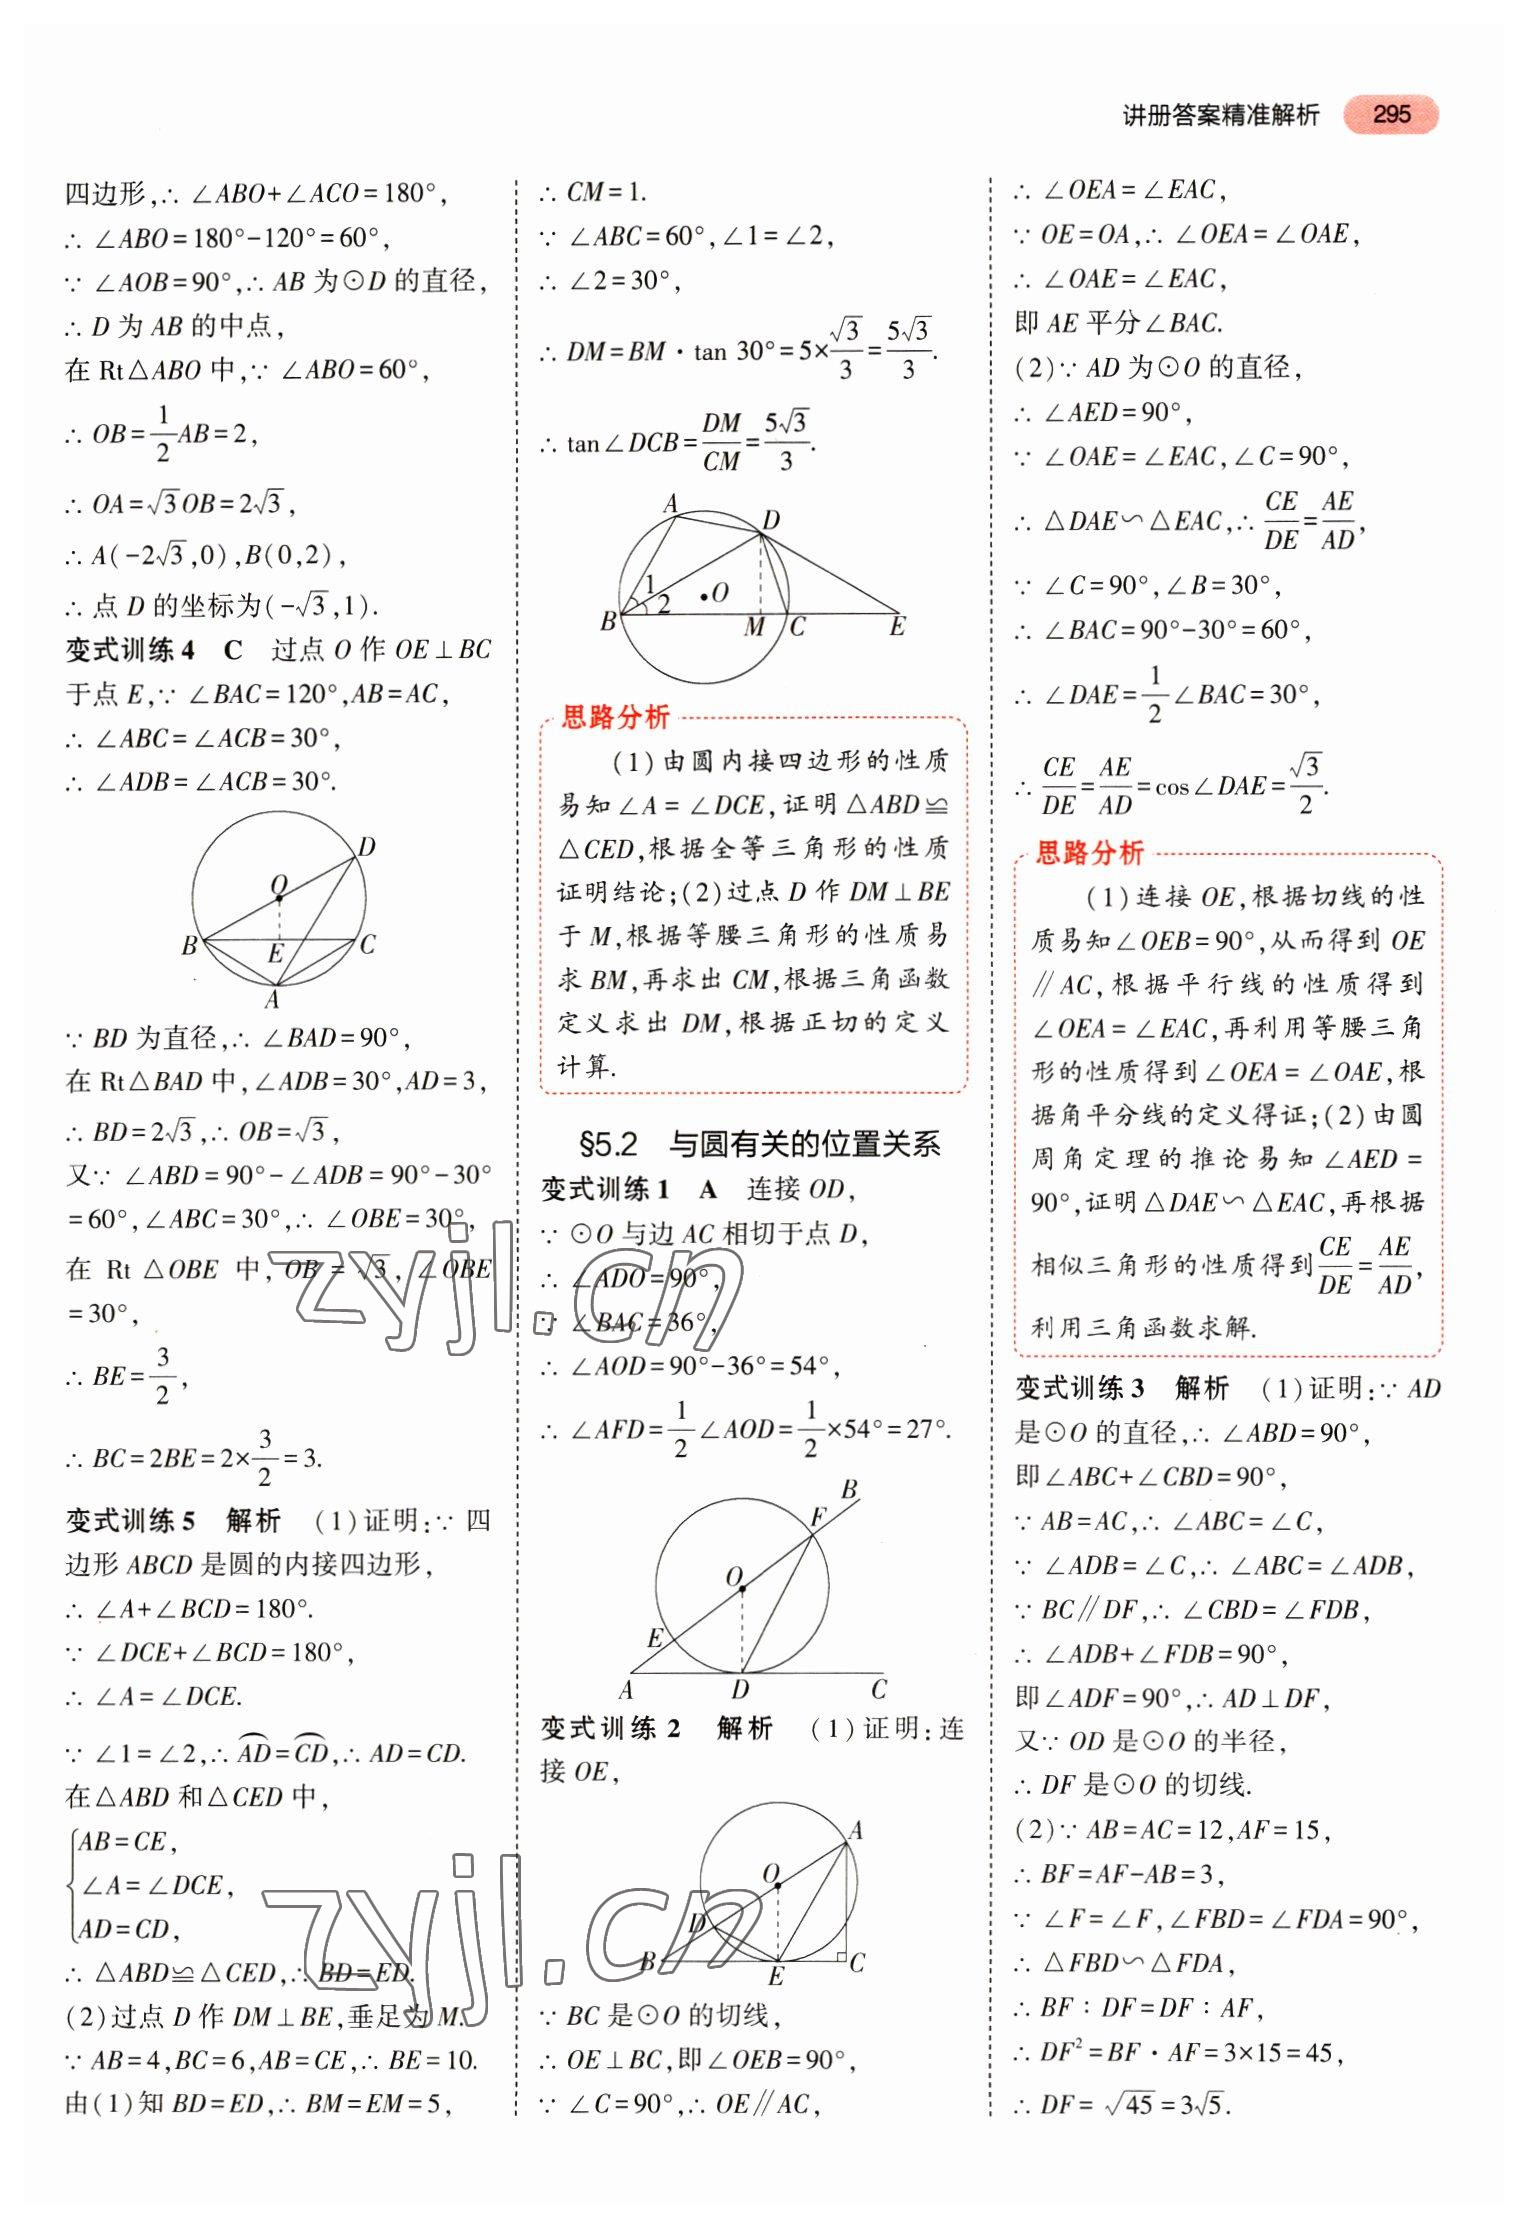 讲册答案精准解析 295
四边形,∴ ∠ABO+∠ACO=180°,
∴ ∠ABO=180°-120°=60°,
∵ ∠AOB=90°,∴ AB 为⊙D 的直径,
∴ D 为 AB 的中点,
在 Rt△ABO 中,∵ ∠ABO=60°,
∴ OB=1/2 AB=2,
∴ OA=√3OB=2√3,
∴ A(-2√3,0),B(0,2),
∴ 点 D 的坐标为(-√3,1).
变式训练4 C 过点 O 作 OE⊥BC
于点 E,∵ ∠BAC=120°,AB=AC,
∴ ∠ABC=∠ACB=30°,
∴ ∠ADB=∠ACB=30°.
D
O
B E C
A
∵ BD 为直径,∴ ∠BAD=90°,
在 Rt△BAD 中,∠ADB=30°,AD=3,
∴ BD=2√3,∴ OB=√3,
又∵ ∠ABD=90°-∠ADB=90°-30°
=60°,∠ABC=30°,∴ ∠OBE=30°,
在 Rt △OBE 中, OB = √3, ∠OBE
=30°,
∴ BE=3/2,
∴ BC=2BE=2×3/2=3.
变式训练5 解析 (1)证明:∵ 四
边形 ABCD 是圆的内接四边形,
∴ ∠A+∠BCD=180°.
∵ ∠DCE+∠BCD=180°,
∴ ∠A=∠DCE.
∵ ∠1=∠2,∴ AD⌒=CD⌒,∴ AD=CD.
在△ABD 和△CED 中,
{AB=CE,
∠A=∠DCE,
AD=CD,
∴ △ABD≌△CED,∴ BD=ED.
(2)过点 D 作 DM⊥BE,垂足为 M.
∵ AB=4,BC=6,AB=CE,∴ BE=10.
由(1)知 BD=ED,∴ BM=EM=5,
∴ CM=1.
∵ ∠ABC=60°,∠1=∠2,
∴ ∠2=30°,
∴ DM=BM·tan 30°=5×√3/3=5√3/3.
∴ tan∠DCB=DM/CM=5√3/3.
A D
1
2 O
B M C E
思路分析
(1)由圆内接四边形的性质
易知∠A=∠DCE,证明△ABD≌
△CED,根据全等三角形的性质
证明结论;(2)过点 D 作 DM⊥BE
于 M,根据等腰三角形的性质易
求 BM,再求出 CM,根据三角函数
定义求出 DM,根据正切的定义
计算.
§5.2 与圆有关的位置关系
变式训练1 A 连接 OD,
∵ ⊙O 与边 AC 相切于点 D,
∴ ∠ADO=90°,
∵ ∠BAC=36°,
∴ ∠AOD=90°-36°=54°,
∴ ∠AFD=1/2∠AOD=1/2×54°=27°.
B
F
O
E
A D C
变式训练2 解析 (1)证明:连
接 OE,
A
O
D
B E C
∵ BC 是⊙O 的切线,
∴ OE⊥BC,即∠OEB=90°,
∵ ∠C=90°,∴ OE∥AC,
∴ ∠OEA=∠EAC,
∵ OE=OA,∴ ∠OEA=∠OAE,
∴ ∠OAE=∠EAC,
即 AE 平分∠BAC.
(2)∵ AD 为⊙O 的直径,
∴ ∠AED=90°,
∵ ∠OAE=∠EAC,∠C=90°,
∴ △DAE∽△EAC,∴ CE/DE=AE/AD,
∵ ∠C=90°,∠B=30°,
∴ ∠BAC=90°-30°=60°,
∴ ∠DAE=1/2∠BAC=30°,
∴ CE/DE=AE/AD=cos∠DAE=√3/2.
思路分析
(1)连接 OE,根据切线的性
质易知∠OEB=90°,从而得到 OE
∥AC,根据平行线的性质得到
∠OEA=∠EAC,再利用等腰三角
形的性质得到∠OEA=∠OAE,根
据角平分线的定义得证;(2)由圆
周角定理的推论易知∠AED=
90°,证明△DAE∽△EAC,再根据
相似三角形的性质得到CE/DE=AE/AD,
利用三角函数求解.
变式训练3 解析 (1)证明:∵ AD
是⊙O 的直径,∴ ∠ABD=90°,
即∠ABC+∠CBD=90°,
∵ AB=AC,∴ ∠ABC=∠C,
∵ ∠ADB=∠C,∴ ∠ABC=∠ADB,
∵ BC∥DF,∴ ∠CBD=∠FDB,
∴ ∠ADB+∠FDB=90°,
即∠ADF=90°,∴ AD⊥DF,
又∵ OD 是⊙O 的半径,
∴ DF 是⊙O 的切线.
(2)∵ AB=AC=12,AF=15,
∴ BF=AF-AB=3,
∵ ∠F=∠F,∠FBD=∠FDA=90°,
∴ △FBD∽△FDA,
∴ BF∶DF=DF∶AF,
∴ DF²=BF·AF=3×15=45,
∴ DF=√45=3√5.
zyjl.cn
zyjl.cn